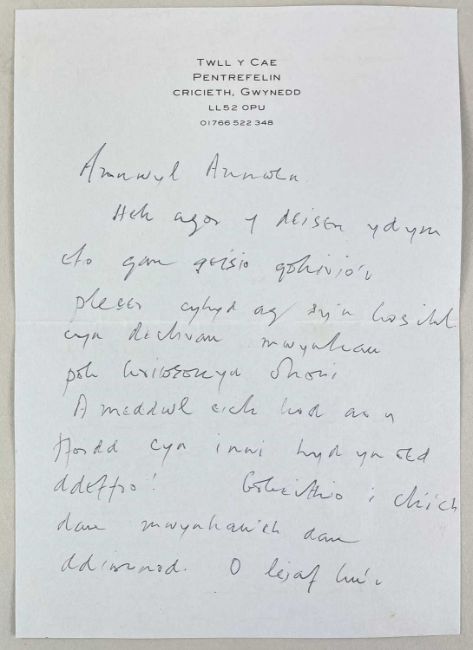 TWLL Y CAE
PENTREFELIN
CRICIETH, GWYNEDD
LL52 0PU
01766 522 348
Annwyl Annwen
Heb agor y deisen ydym
eto gan geisio gohirio'r
pleser cyhyd ag sy'n bosibl
cyn dechrau mwynhau
pob briwsonyn ohoni
A meddwl eich bod ar y
ffordd cyn inni hyd yn oed
ddeffro! Gobeithio i chwi
dau mwynhau eich dau
ddiwrnod. O leiaf bu'r